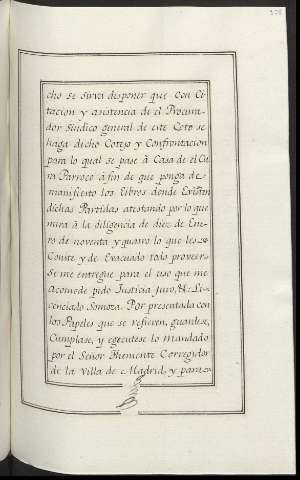 cho se sirva disponer que con Ci-
tacion y asistencia de el Procura-
dor Sindico general de este Coto se
haga dicho Cotejo y Confrontacion
para lo qual se pase à Casa de el Cu
ra Parroco à fin de que ponga de
manifiesto los Libros donde Existen
dichas Partidas atestando por lo que
mira à la diligencia de diez de Ene-
ro de noventa y quatro lo que les
Conste y de Evacuado todo proveer
Se me entregue para el uso que me
acomode pido Justicia juro, &: Li-
cenciado Somoza. Por presentada con
los Papeles que se refieren, guardese,
Cumplase, y egecutese lo mandado
por el Señor Theniente Corregidor
de la Villa de Madrid, y para